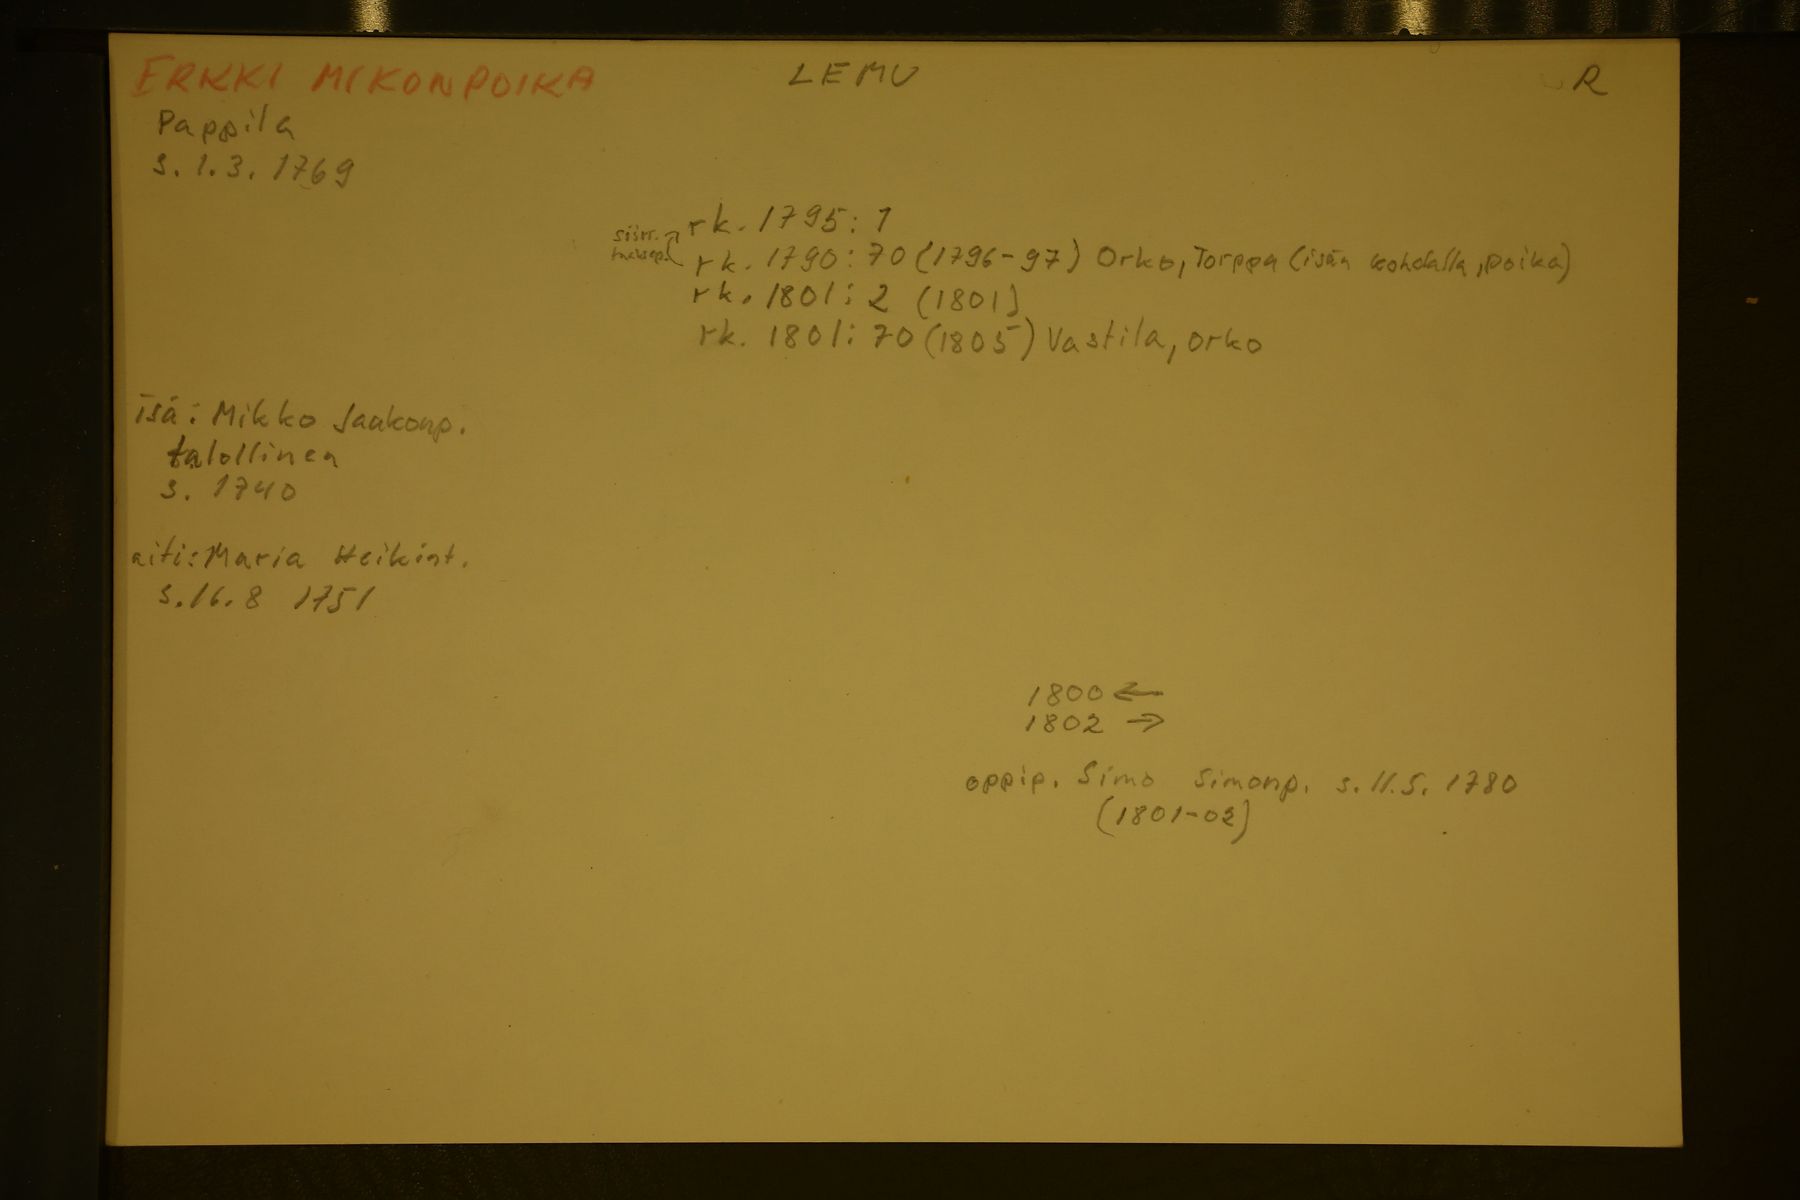 ERKKI MIKONPOIKA LEMU R
Pappila
s. 1.3. 1769
rk. 1795: 1
siirt.
rk. 1790: 70 (1796-97) Orko, Torppa (isän kohdalla, poika)
rk. 1801: 2 (1801)
rk. 1801: 70 (1805) Vastila, Orko
isä: Mikko Jaakonp.
talollinen
s. 1740
äiti: Maria Heikint.
s. 16.8 1751
1800 ←
1802 →
oppip. Simo Simonp. s. 11.5. 1780
(1801-02)